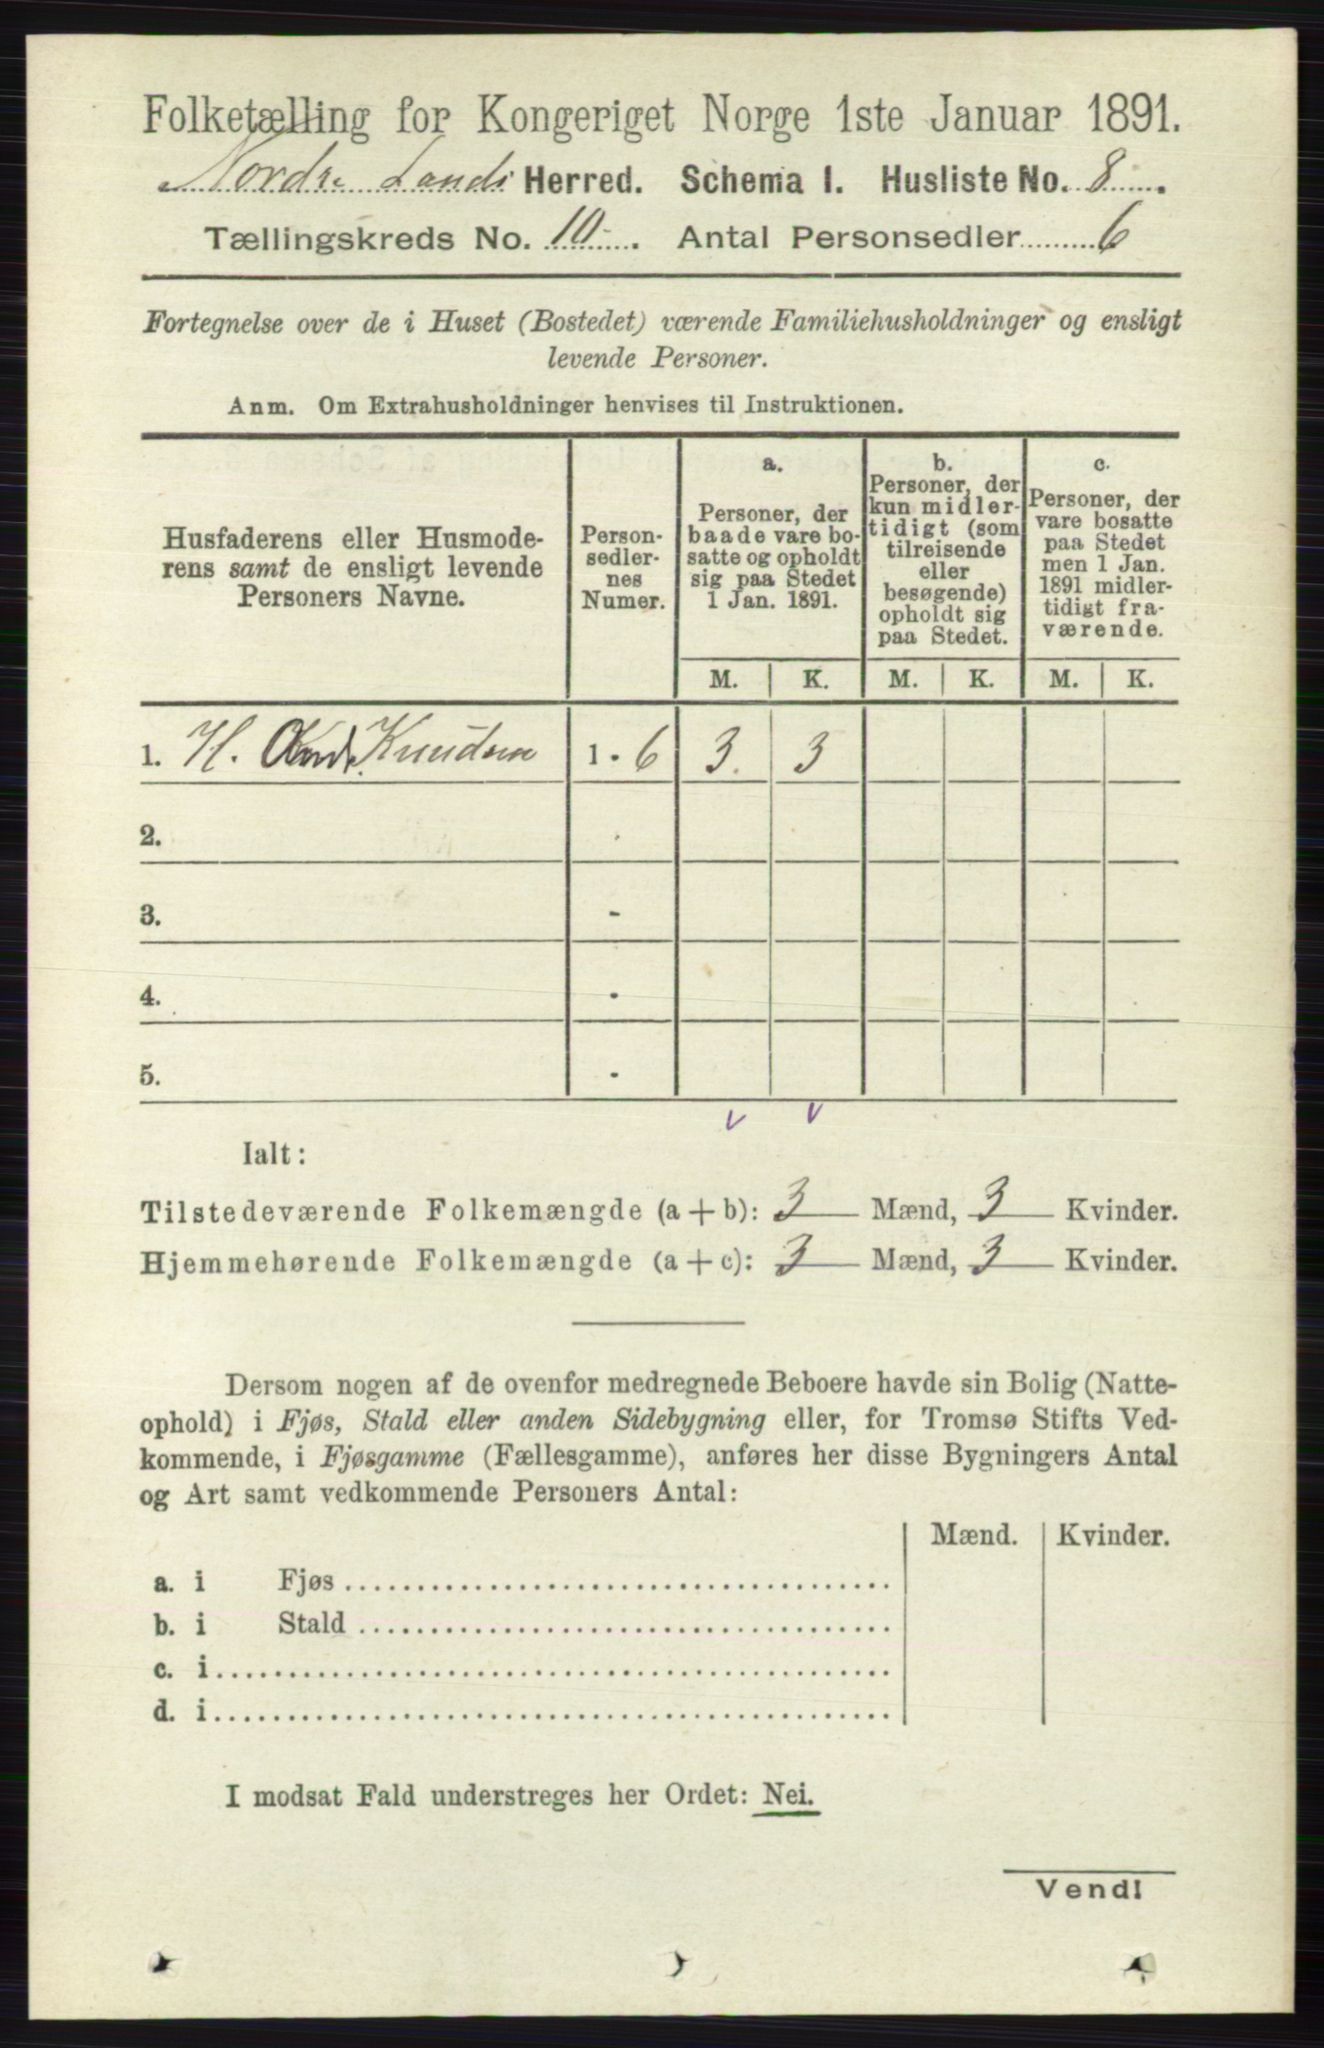 Folketælling for Kongeriget Norge 1ste Januar 1891.
Nordre Lands Herred. Schema I. Husliste No. 8.
Tællingskreds No. 10. Antal Personsedler 6
Fortegnelse over de i Huset (Bostedet) værende Familiehusholdninger og ensligt
levende Personer.
Anm. Om Extrahusholdninger henvises til Instruktionen.
Husfaderens eller Husmode-
rens samt de ensligt levende
Personers Navne.
Person-
sedler-
nes
Numer.
a.
Personer, der
baade vare bo-
satte og opholdt
sig paa Stedet
1 Jan. 1891.
b.
Personer, der
kun midler-
tidigt (som
tilreisende
eller
besøgende)
opholdt sig
paa Stedet.
c.
Personer, der
vare bosatte
paa Stedet
men 1 Jan.
1891 midler-
tidigt fra-
værende.
M. K. M. K. M. K.
1. H. Knudsen 1 - 6 3. 3
2. -
3. -
4. -
5. -
Ialt:
Tilstedeværende Folkemængde (a + b): 3 Mænd, 3 Kvinder.
Hjemmehørende Folkemængde (a + c): 3 Mænd, 3 Kvinder.
Dersom nogen af de ovenfor medregnede Beboere havde sin Bolig (Natte-
ophold) i Fjøs, Stald eller anden Sidebygning eller, for Tromsø Stifts Ved-
kommende, i Fjøsgamme (Fællesgamme), anføres her disse Bygningers Antal
og Art samt vedkommende Personers Antal:
Mænd. Kvinder.
a. i Fjøs
b. i Stald
c. i
d. i
I modsat Fald understreges her Ordet: Nei.
Vend!